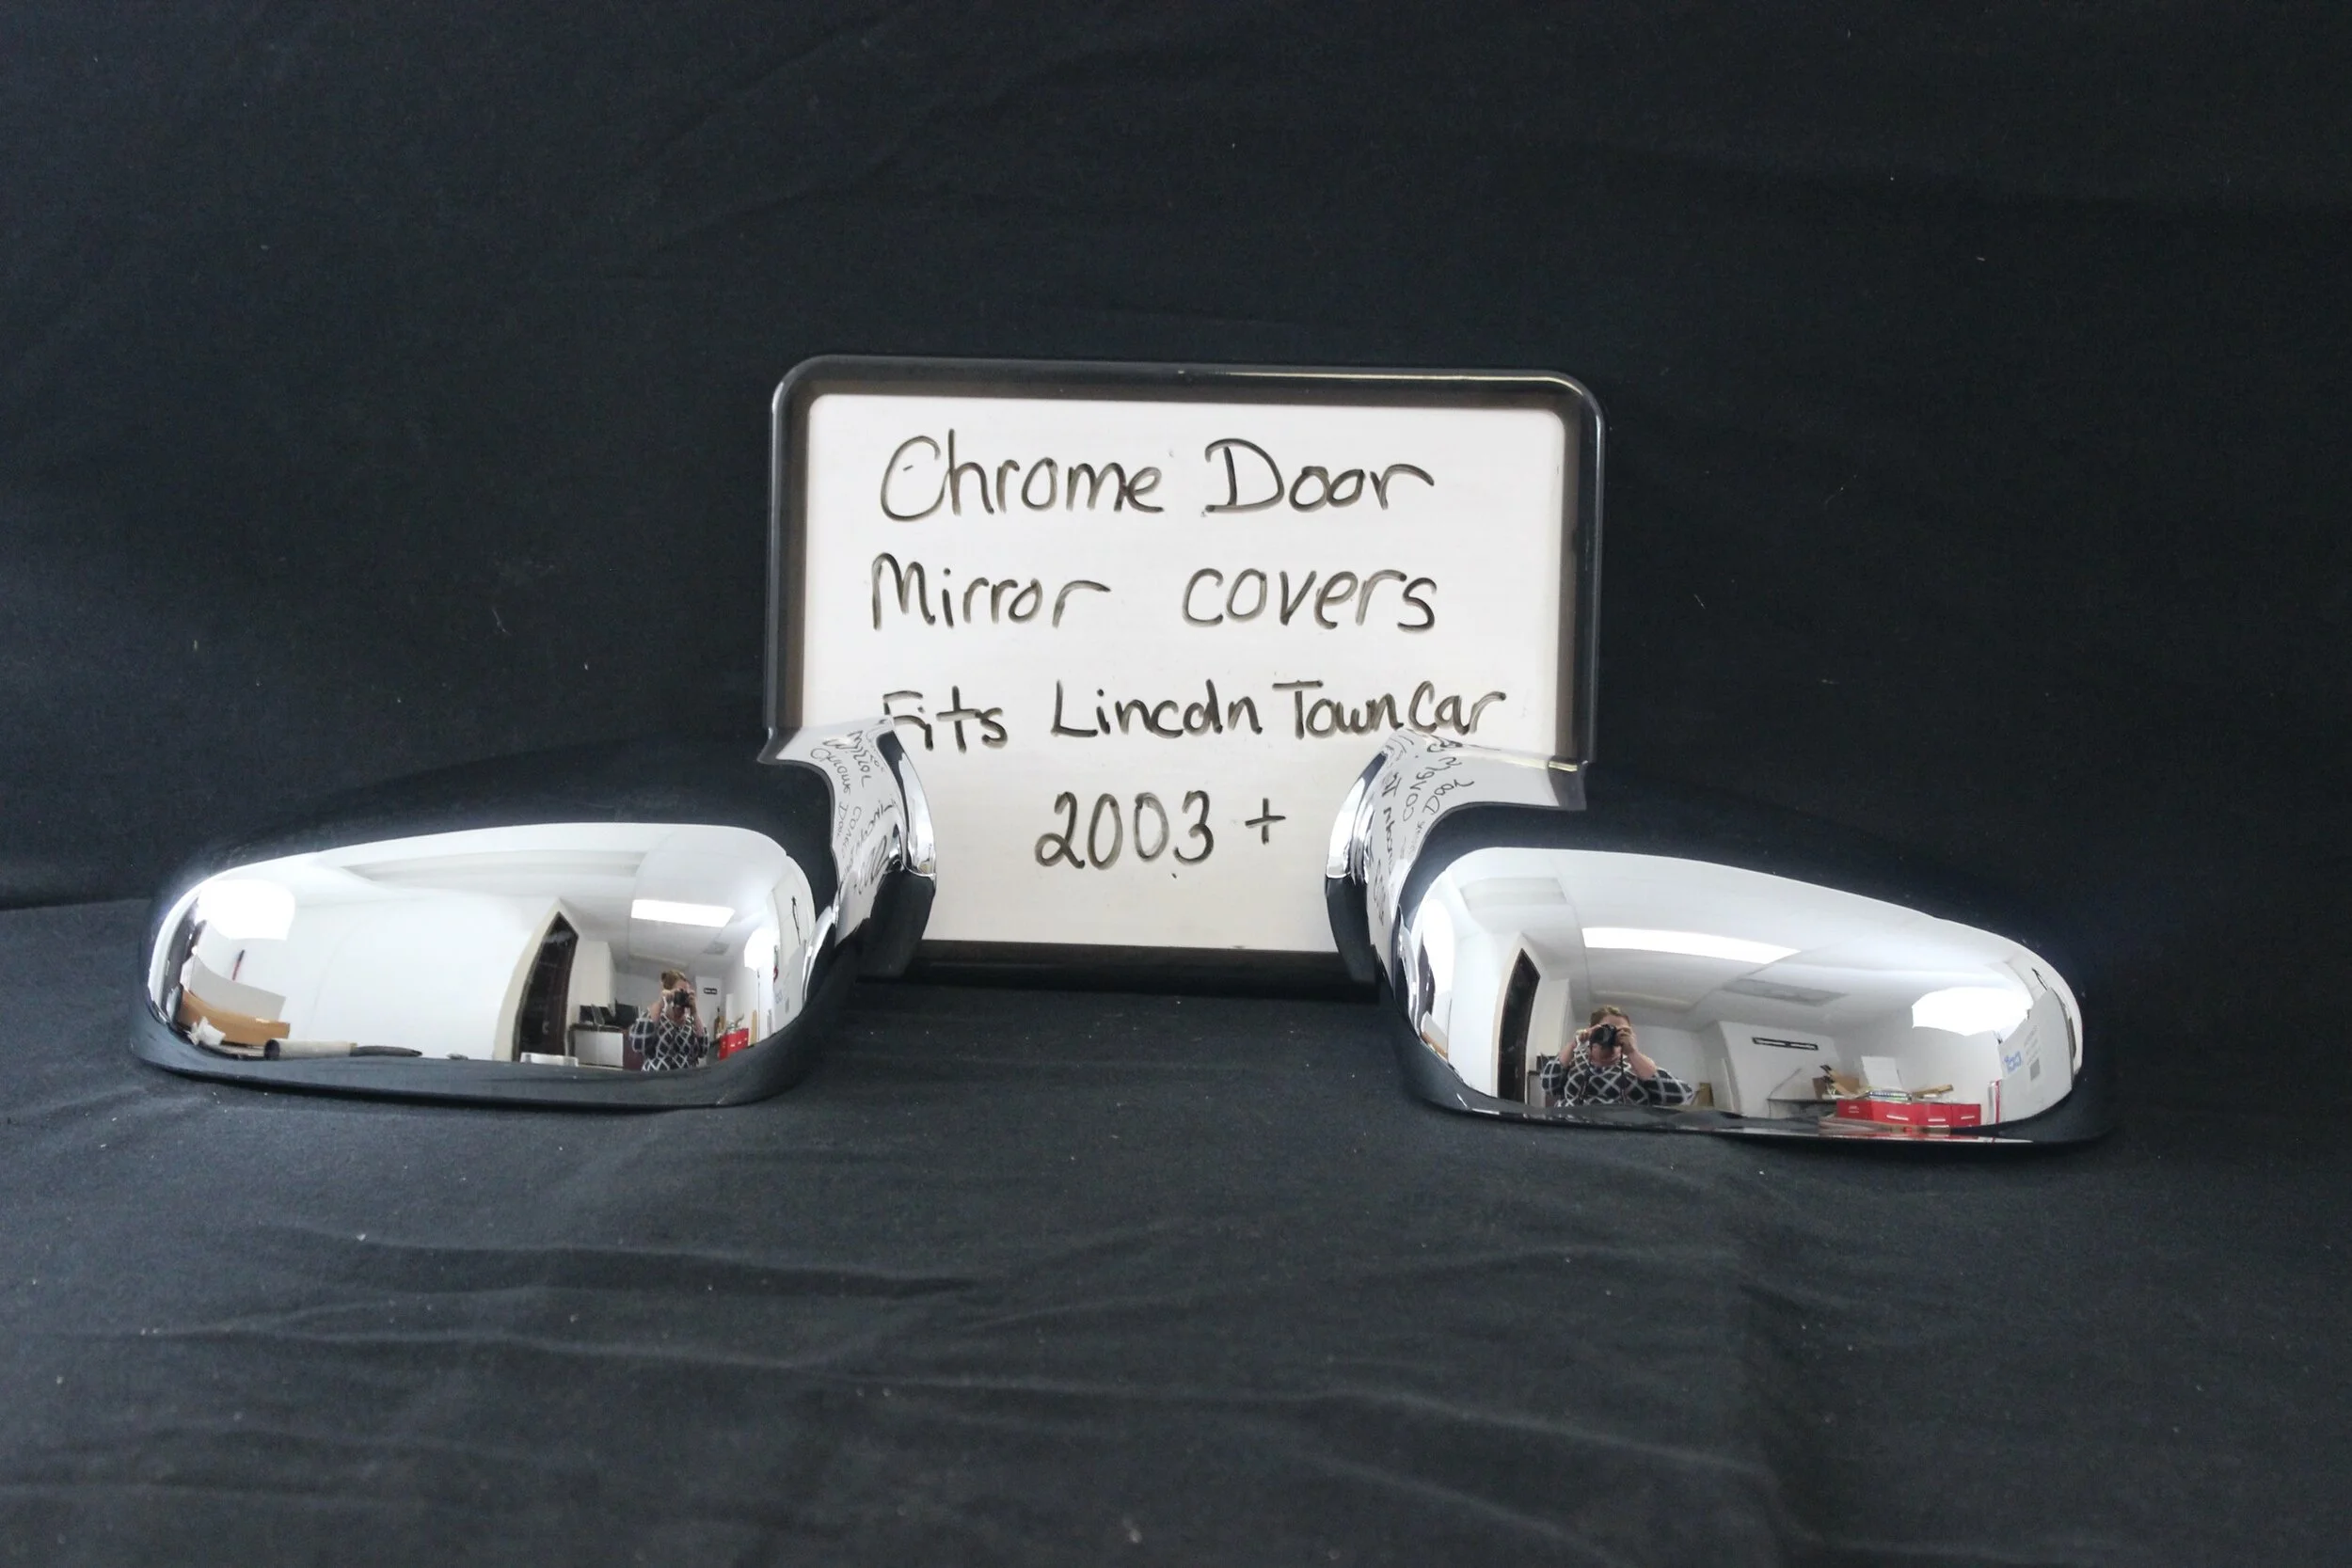 Chrome Door
Mirror covers
Fits Lincoln Town Car
2003 +